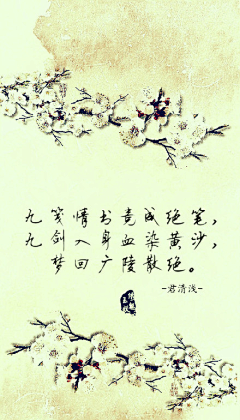 九笺情书竟成绝笔，
九剑入身血染黄沙，
梦回广陵散绝。
-君清浅-